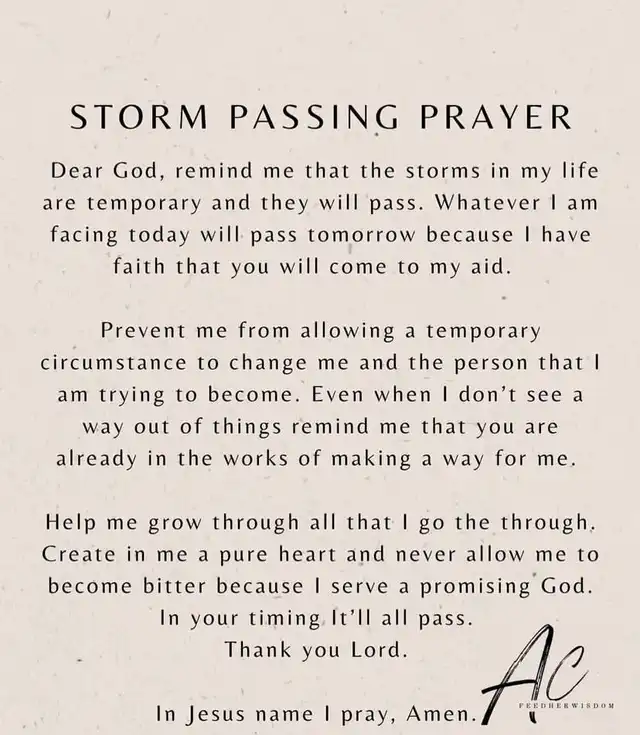 STORM PASSING PRAYER
Dear God, remind me that the storms in my life
are temporary and they will pass. Whatever I am
facing today will pass tomorrow because I have
faith that you will come to my aid.
Prevent me from allowing a temporary
circumstance to change me and the person that I
am trying to become. Even when I don’t see a
way out of things remind me that you are
already in the works of making a way for me.
Help me grow through all that I go the through.
Create in me a pure heart and never allow me to
become bitter because I serve a promising God.
In your timing It’ll all pass.
Thank you Lord.
In Jesus name I pray, Amen.
AC
FEEDHERWISDOM